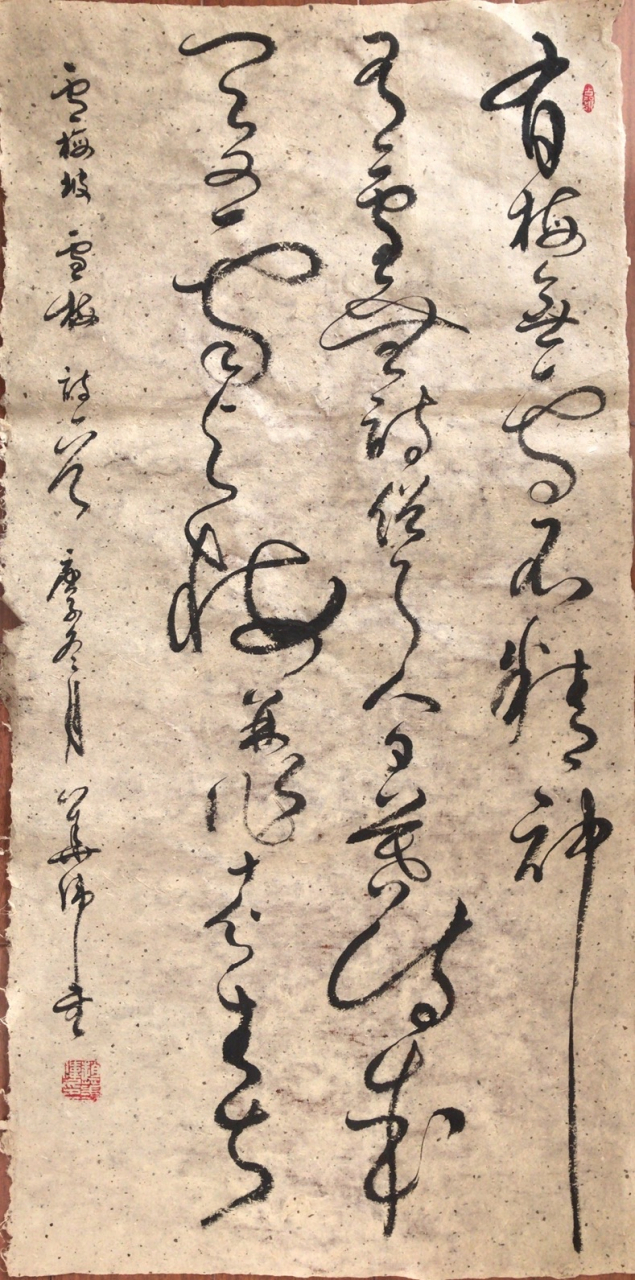 有梅無雪不精神
有雪無詩俗了人日暮詩成
天又雪與梅並作十分春
盧梅坡 雪梅 詩一首 庚子冬月 華偉書